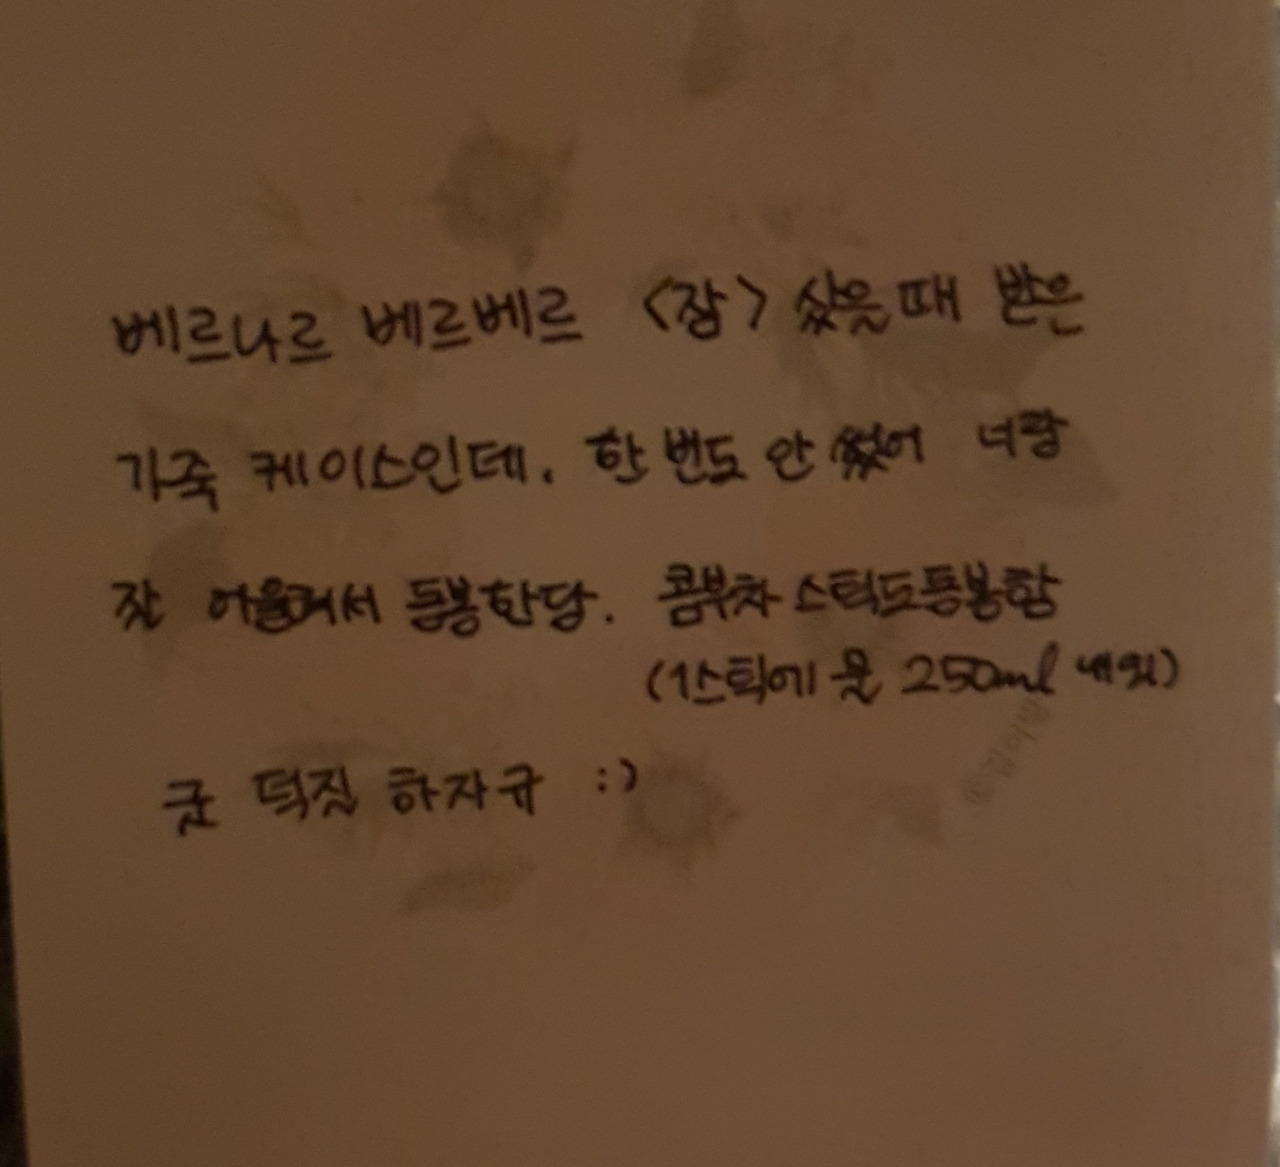 베르나르 베르베르 <잠> 샀을때 받은
가죽 케이스인데. 한 번도 안 썼어 너랑
잘 어울려서 동봉한당. 콤부차 스틱도동봉함
(1스틱에 물 250ml 내외)
굳 덕질 하자규 :)